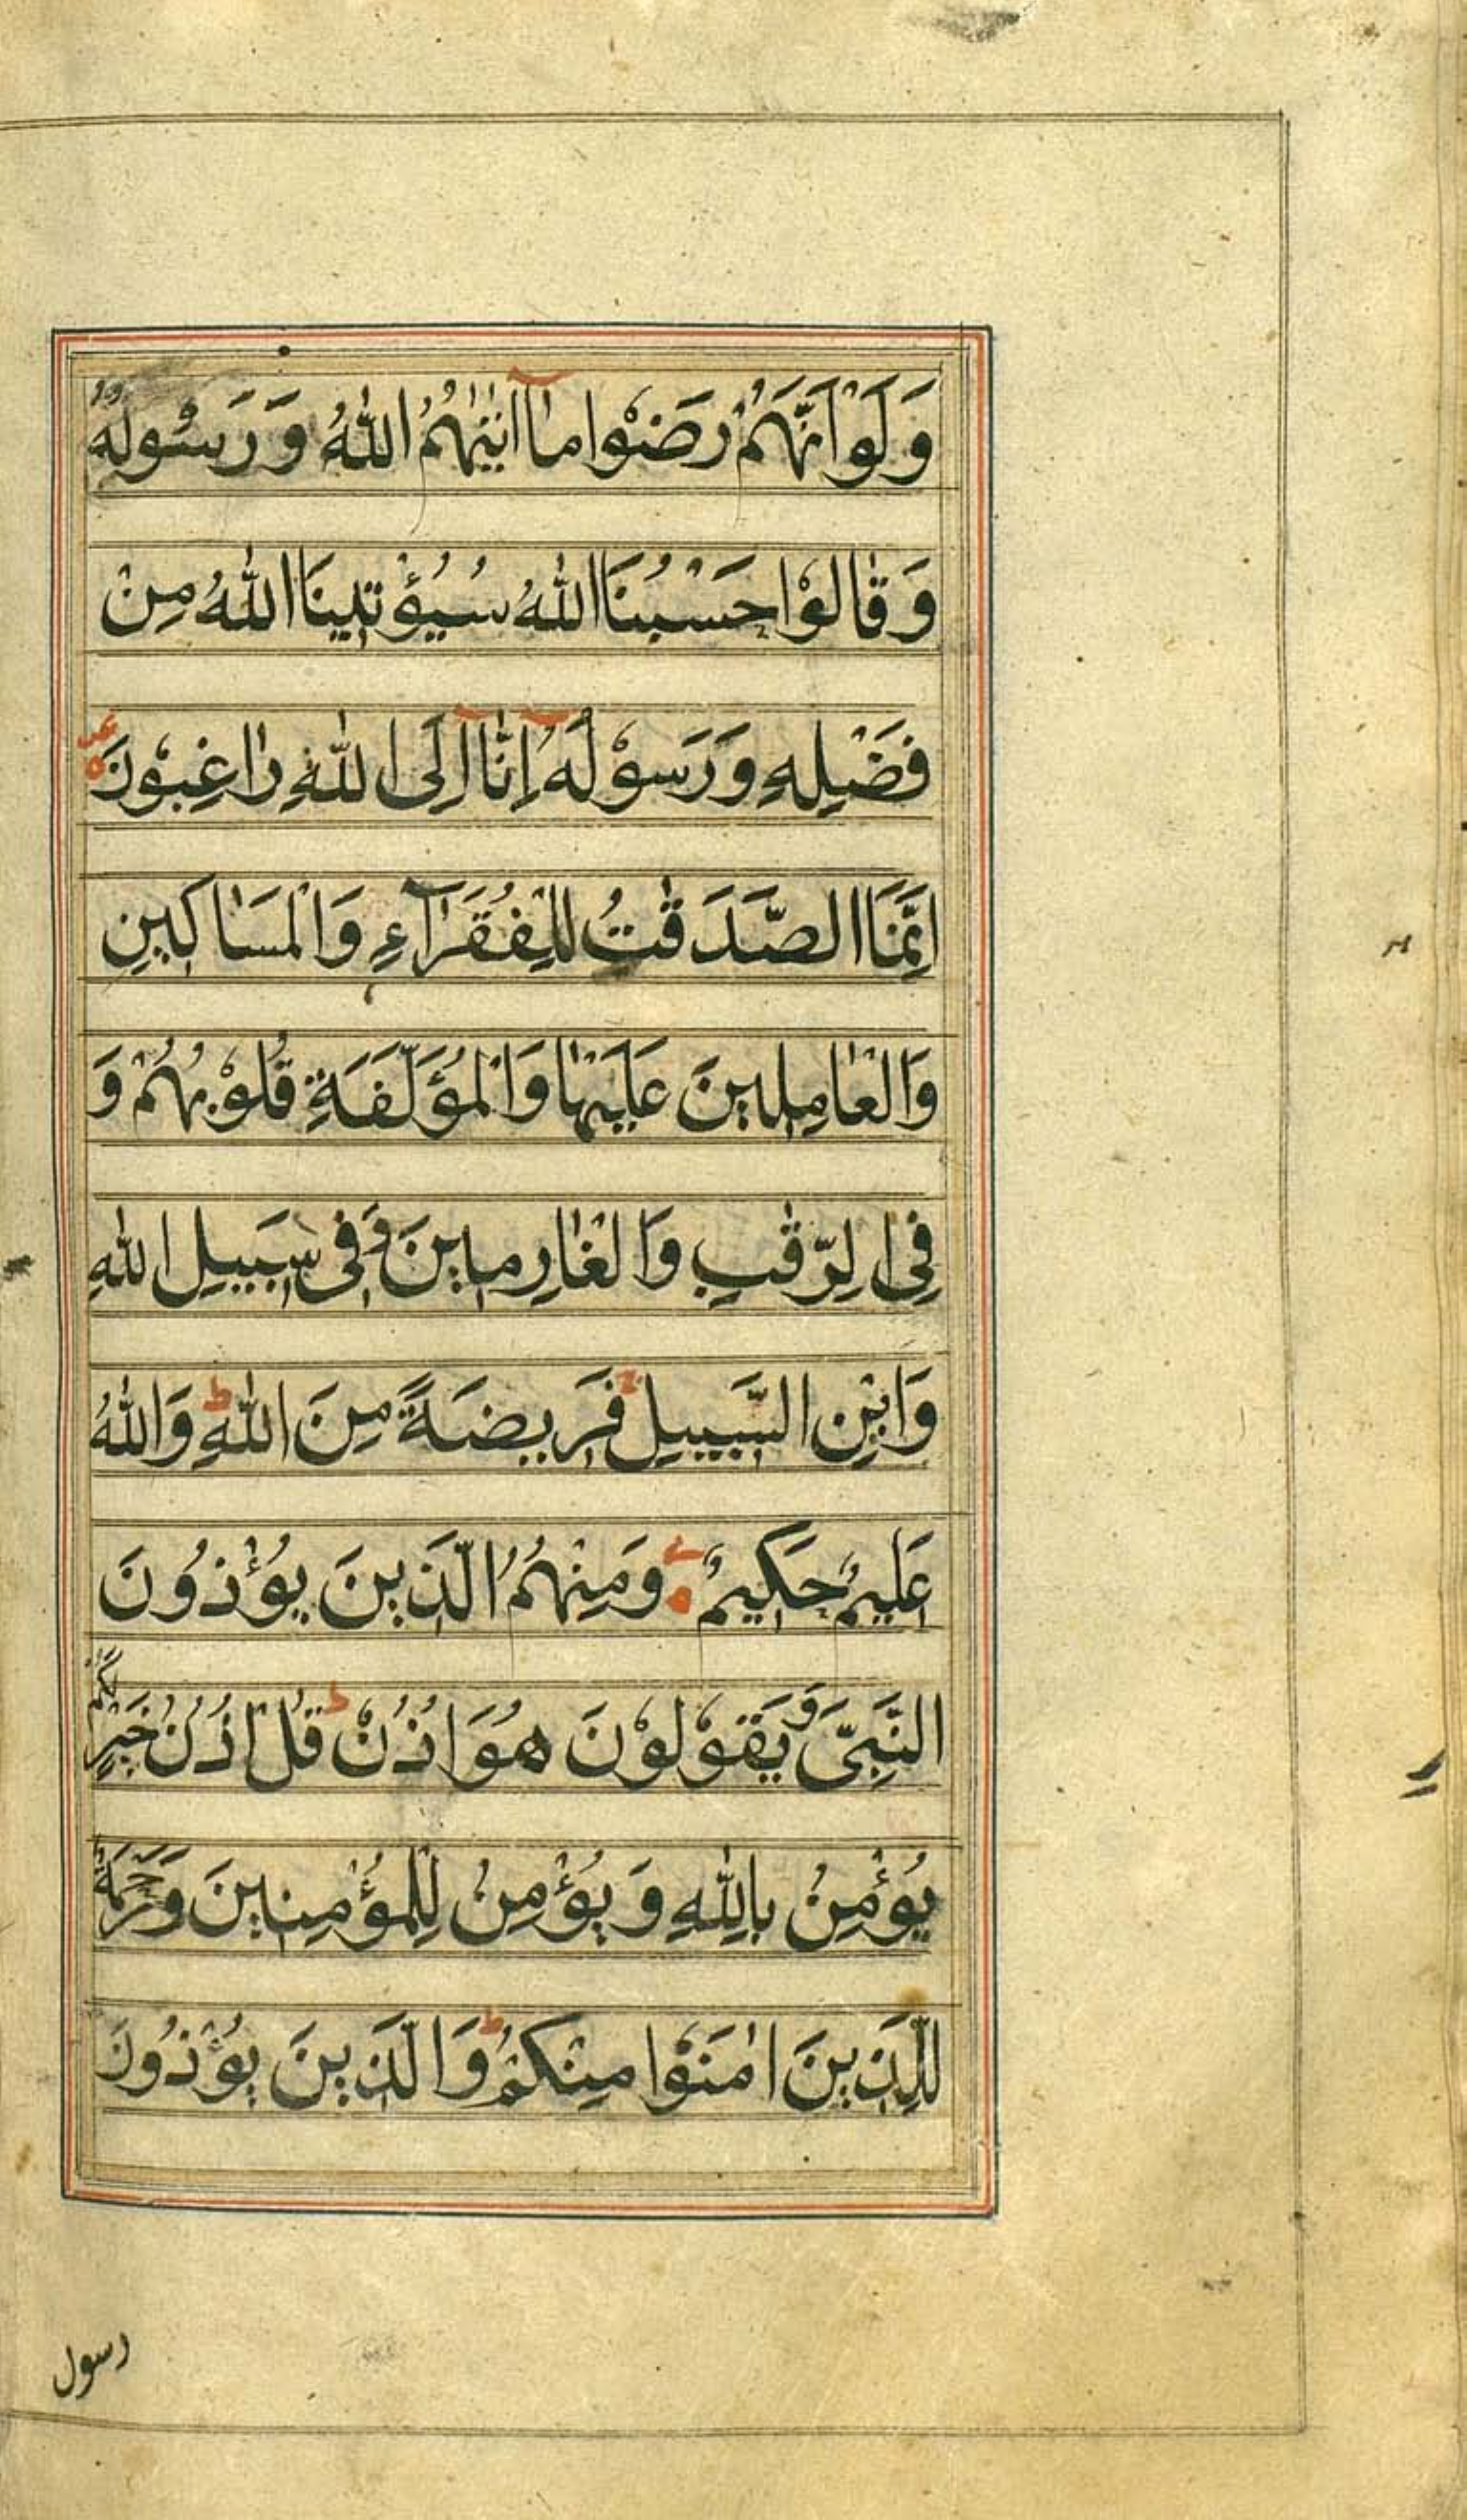 وَلَوْ اَنَّهُمْ رَضُوْا مَاۤ اٰتٰىهُمُ اللّٰهُ وَ رَسُولُهُ
وَ قٰالُوْا حَسْبُنَا اللّٰهُ سَيُؤْتِينَا اللّٰهُ مِنْ
فَضْلِهِ وَ رَسُوْلُهُ اِنّٰاۤ اِلَى اللّٰهِ رٰاغِبُوْنَ
اِنَّمَا الصَّدَقٰتُ لِلْفُقَرَآءِ وَالْمَسٰاكِينِ
وَالْعٰامِلِينَ عَلَيْهٰا وَالْمُؤَلَّفَةِ قُلُوْبُهُمْ وَ
فِى الرِّقٰبِ وَالْغٰارِمِينَ وَفِى سَبِيلِ اللّٰهِ
وَابْنِ السَّبِيلِ ط فَرِيضَةً مِنَ اللّٰهِ ط وَاللّٰهُ
عَلِيمٌ حَكِيمٌ وَمِنْهُمُ الَّذِينَ يُؤْذُونَ
النَّبِىَّ وَ يَقُوْلُوْنَ هُوَ اُذُنٌ ط قُلْ اُذُنُ خَيْرٍ لَكُمْ
يُؤْمِنُ بِاللّٰهِ وَ يُؤْمِنُ لِلْمُؤْمِنِينَ وَرَحْمَةٌ
لِلَّذِينَ اٰمَنُوْا مِنْكُمْ ط وَالَّذِينَ يُؤْذُونَ
رسول